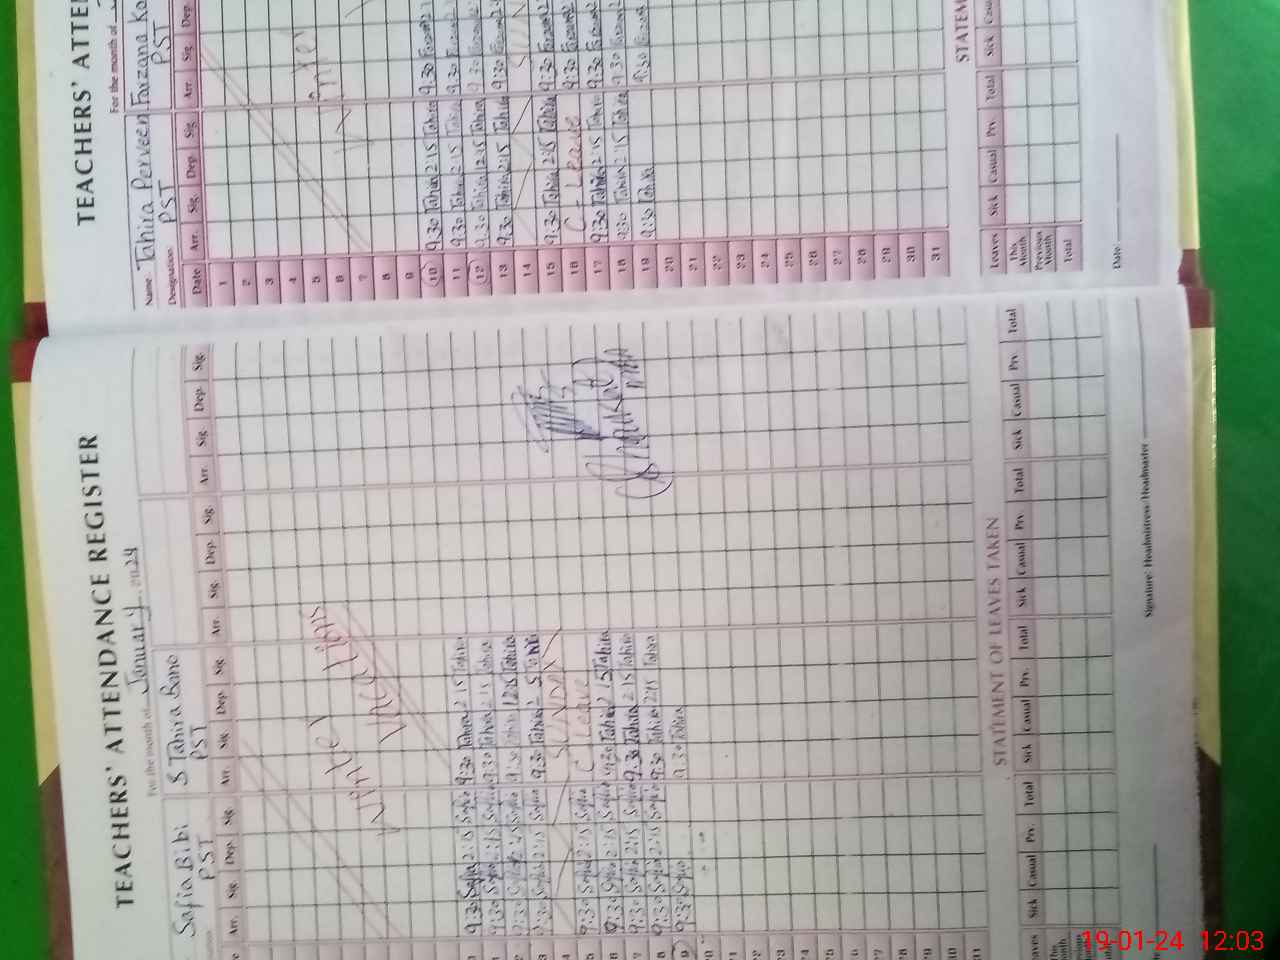 TEACHERS' ATTENDANCE REGISTER
For the month of January 2024
Safia Bibi
PST
S Tahira Bano
PST
Arr. Sig. Dep. Sig. Arr. Sig. Dep. Sig. Arr. Sig. Dep. Sig. Arr. Sig. Dep. Sig.
Winter
Vacations
9:30 Safia 2:15 Safia 9:30 Tahira 2:15 Tahira
9:30 Safia 2:15 Safia 9:30 Tahira 2:15 Tahira
9:30 Safia 12:15 Safia 9:30 Tahira 12:15 Tahira
9:30 Safia 2:15 Safia 9:30 Tahira
SUNDAY
9:30 Safia 2:15 Safia C Leave
9:30 Safia 2:15 Safia 9:30 Tahira 2:15 Tahira
9:30 Safia 2:15 Safia 9:30 Tahira 2:15 Tahira
9:30 Safia 2:15 Safia 9:30 Tahira 2:15 Tahira
9:30 Safia 9:30 Tahira
STATEMENT OF LEAVES TAKEN
Leaves Sick Casual Prv. Total Sick Casual Prv. Total Sick Casual Prv. Total Sick Casual Prv. Total
Signature: Headmistress/Headmaster
TEACHERS' ATTE
For the month of
Name Tahira Perveen Farzana Ko
Designation PST PST
Date Arr. Sig. Dep. Sig. Arr. Sig. Dep.
1
2
3
4
5
6
7
8
9
Winter
10 9:30 Tahira 2:15 Tahira 9:30 Farzana 2
11 9:30 Tahira 2:15 Tahira 9:30 Farzana 2
12 9:30 Tahira 12:15 Tahira 9:30 Farzana
13 9:30 Tahira 2:15 Tahira 9:30 Farzana 2
14
15 9:30 Tahira 2:15 Tahira 9:30 Farzana 2
16 C - Leave 9:30 Farzana 2
17 9:30 Tahira 2:15 Tahira 9:30 Farzana 2
18 9:30 Tahira 2:15 Tahira 9:30 Farzana 2
19 9:30 Tahira 9:30 Farzana
20
21
22
23
24
25
26
27
28
29
30
31
STATEM
Leaves Sick Casual Prv. Total Sick Casu
This Month
Previous Month
Total
Date
19-01-24 12:03